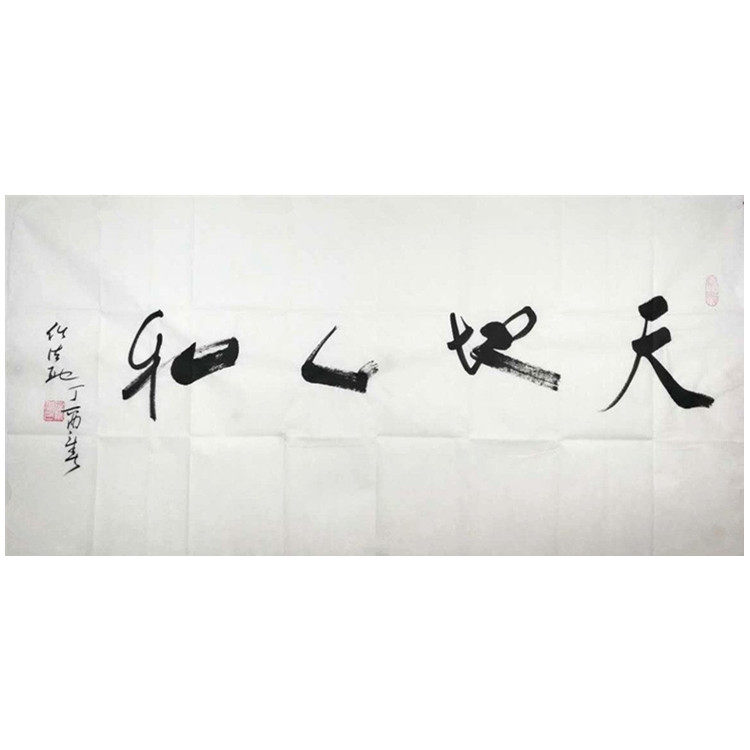 天地人和
丁酉春